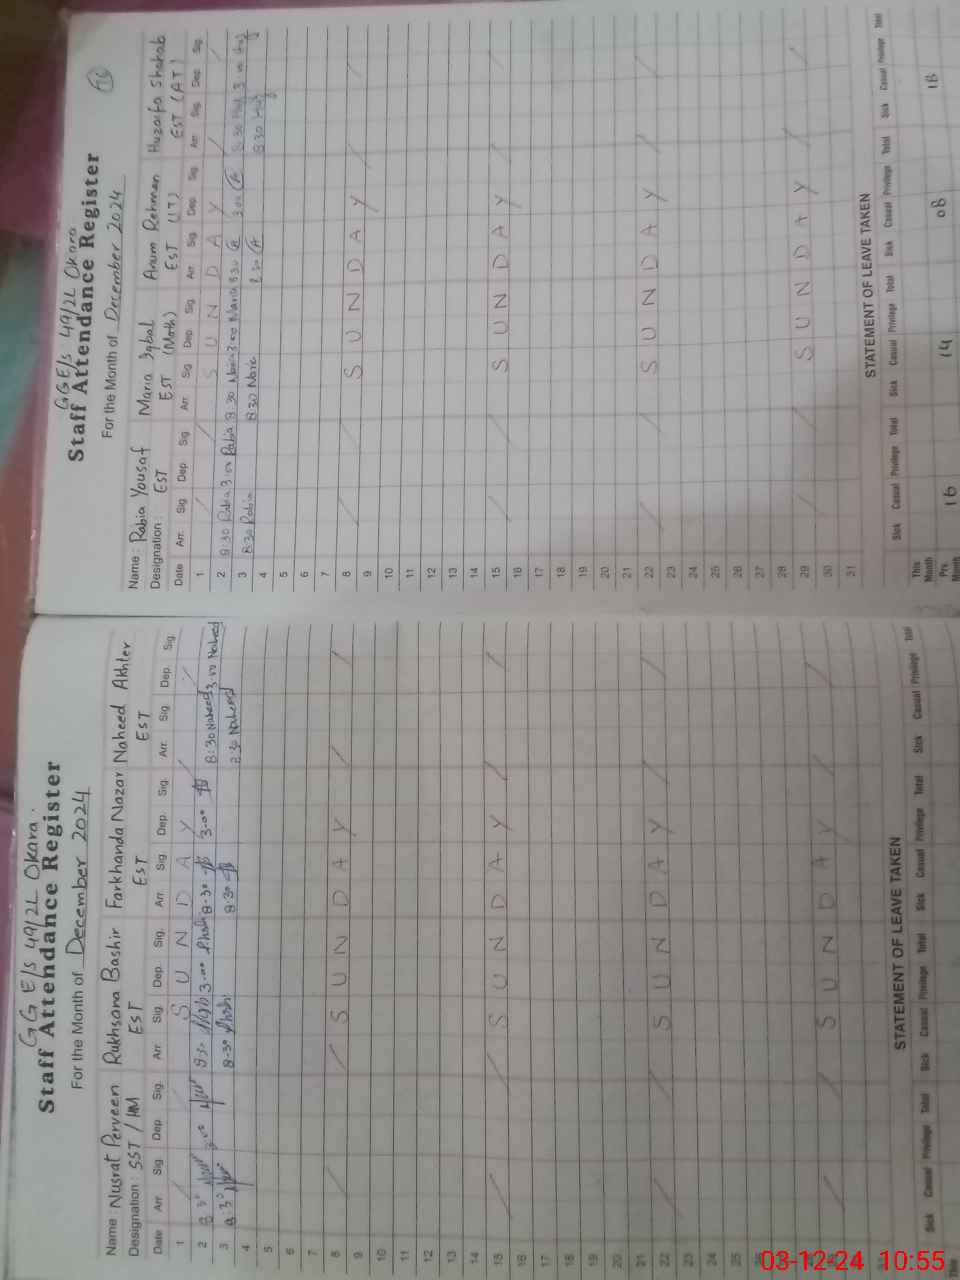 GG E/s 49/2L Okara.
Staff Attendance Register
For the Month of December 2024
Name: Nusrat Perveen Rukhsana Bashir Farkhanda Nazar Naheed Akhter
Designation: SST / HM EST EST EST
Date Arr. Sig. Dep. Sig. Arr. Sig. Dep. Sig. Arr. Sig. Dep. Sig. Arr. Sig. Dep. Sig.
1 SUNDAY
2 8:30 3:00 8:30 3-00 8-30 3-00 8:30 Naheed 3:00 Naheed
3 8:30 8-30 8-30 Naheed
4
5
6
7
8 SUNDAY
9
10
11
12
13
14
15 SUNDAY
16
17
18
19
20
21
22 SUNDAY
23
24
25
26
27
28
SUNDAY
STATEMENT OF LEAVE TAKEN
Sick Casual Privilege Total Sick Casual Privilege Total Sick Casual Privilege Total Sick Casual Privilege Total
This
GGE/s 49/2L Okara
Staff Attendance Register
For the Month of December 2024
16
Name: Rabia Yousaf Maria Iqbal Anum Rehman Huzaifa Shahab
Designation: EST EST (Math) EST (IT) EST (AT)
Date Arr. Sig. Dep. Sig. Arr. Sig. Dep. Sig. Arr. Sig. Dep. Sig. Arr. Sig. Dep. Sig.
1 SUNDAY
2 8:30 Rabia 3:00 Rabia 8:30 Maria 3:00 Maria 8:30 3:00 8:30 Huz 3:00 Huz
3 8:30 Rabia 8:30 8:30 8:30 Huz
4
5
6
7
8 SUNDAY
9
10
11
12
13
14
15 SUNDAY
16
17
18
19
20
21
22 SUNDAY
23
24
25
26
27
28
29 SUNDAY
30
31
STATEMENT OF LEAVE TAKEN
Sick Casual Privilege Total Sick Casual Privilege Total Sick Casual Privilege Total Sick Casual Privilege Total
This Month
Pre. Month 16 14 08 18
03-12-24 10:55